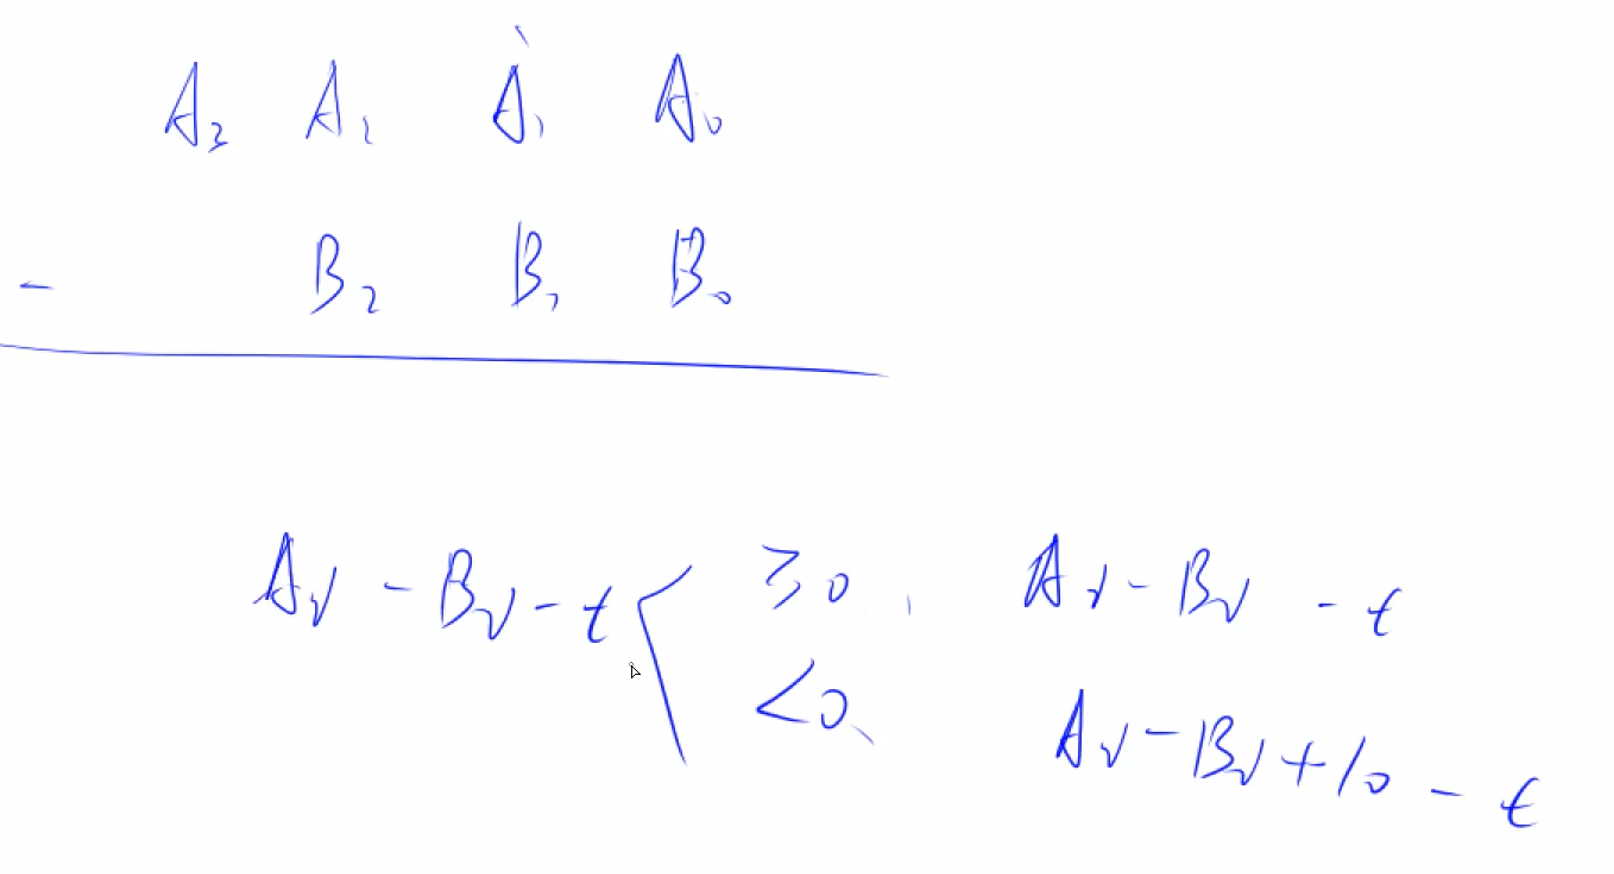 A₃ A₂ A₁ A₀
- B₂ B₁ B₀
Aᵢ - Bᵢ - t ≥0, Aᵢ - Bᵢ - t
<0, Aᵢ - Bᵢ + 10 - t